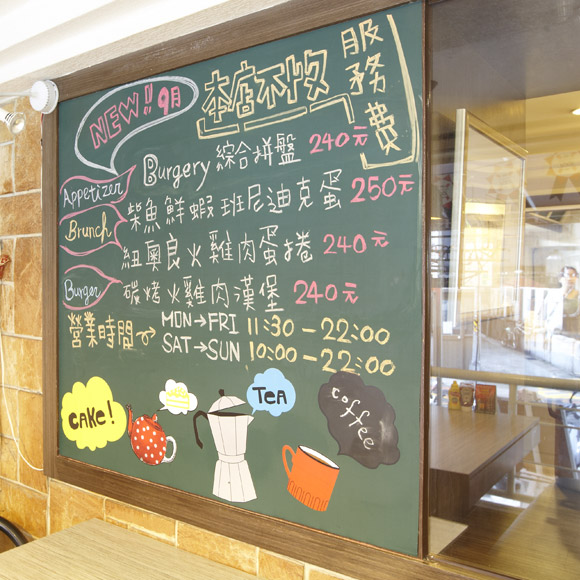 NEW!! 9月
本店不收
服務費
Appetizer
Burgery 綜合拼盤 240元
Brunch
柴魚鮮蝦班尼迪克蛋 250元
紐奧良火雞肉蛋捲 240元
Burger
碳烤火雞肉漢堡 240元
營業時間→ MON→FRI 11:30-22:00
SAT→SUN 10:00-22:00
CAKE!
TEA
coffee